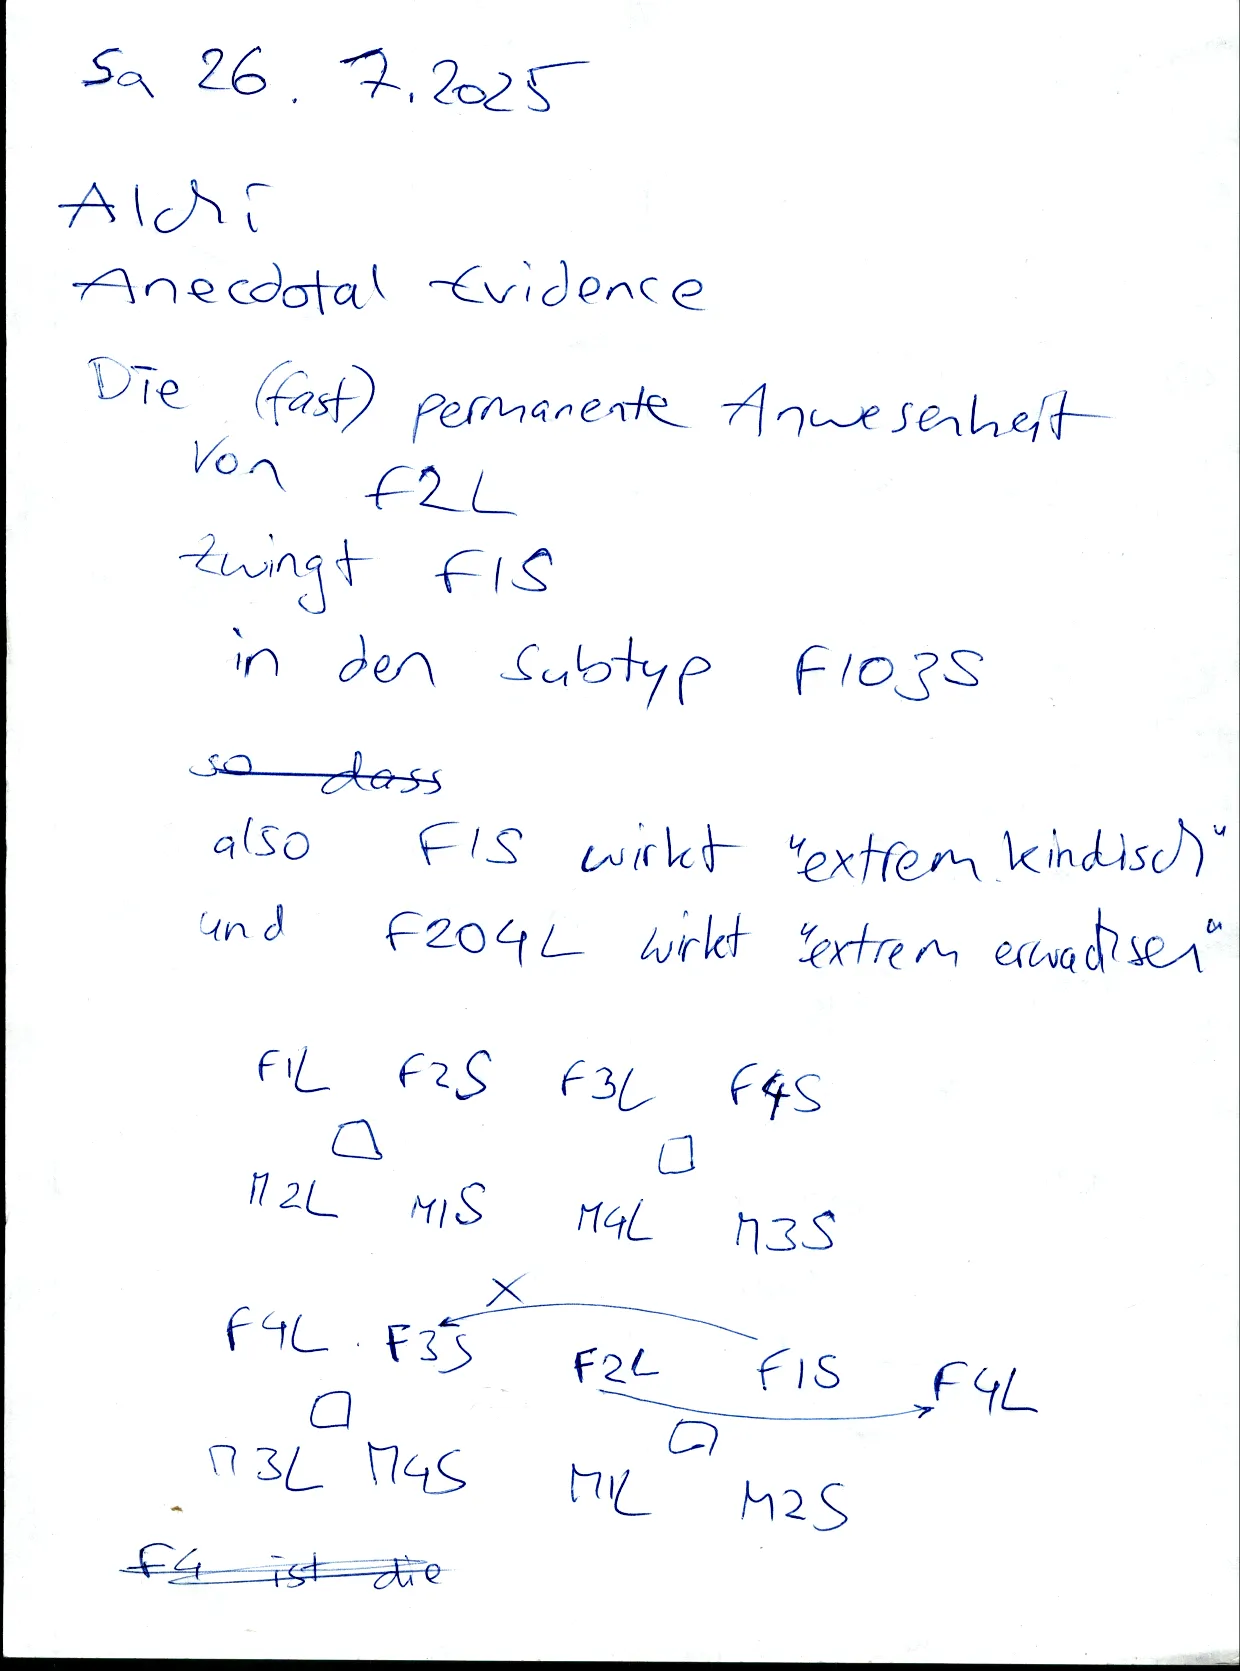 Sa 26. 7. 2025
Alchi
Anecdotal Evidence
Die (fast) permanente Anwesenheit
von F2L
zwingt F1S
in den Subtyp F103S
so dass
also F1S wirkt "extrem kindisch"
und F204L wirkt "extrem erwachsen"
F1L F2S F3L F4S
M2L M1S M4L M3S
X
F4L F3S F2L F1S F4L
M3L M4S M1L M2S
F4 ist die